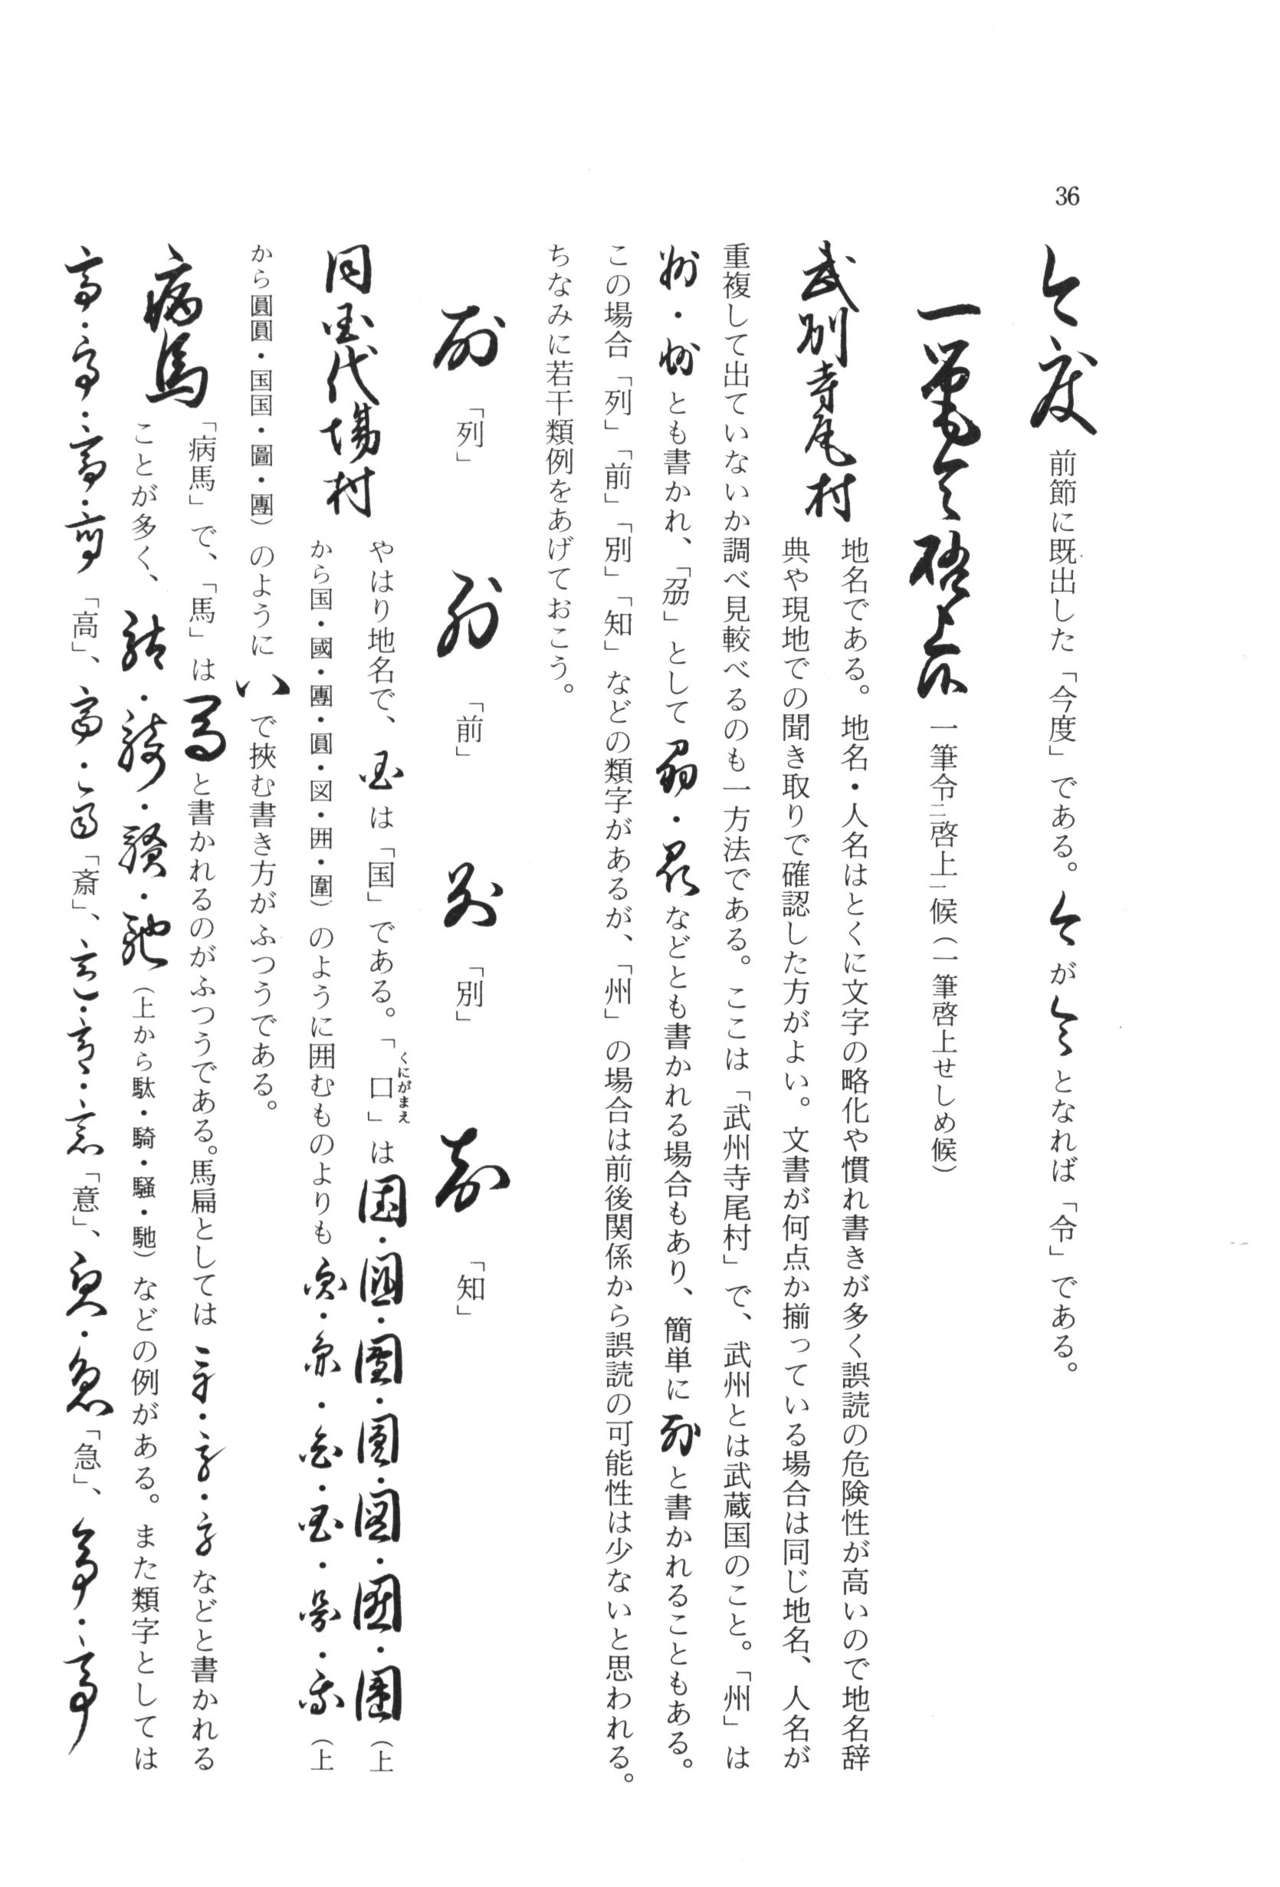 36
今度 前節に既出した「今度」である。今が令となれば「令」である。
一筆令啓上候 一筆令二啓上一候（一筆啓上せしめ候）
武州寺尾村 地名である。地名・人名はとくに文字の略化や慣れ書きが多く誤読の危険性が高いので地名辞
典や現地での聞き取りで確認した方がよい。文書が何点か揃っている場合は同じ地名、人名が
重複して出ていないか調べ見較べるのも一方法である。ここは「武州寺尾村」で、武州とは武蔵国のこと。「州」は
州・州とも書かれ、「刕」としてなどとも書かれる場合もあり、簡単にと書かれることもある。
この場合「列」「前」「別」「知」などの類字があるが、「州」の場合は前後関係から誤読の可能性は少ないと思われる。
ちなみに若干類例をあげておこう。
列「列」 前「前」 別「別」 知「知」
同国代場村 やはり地名で、国は「国」である。「囗」はくにがまえ 国・國・團・圓・図・囲・圍（上
から国・國・團・圓・図・囲・圍）のように囲むものよりも（上
から圓圓・国国・圖・團）のようにで挾む書き方がふつうである。
病馬 「病馬」で、「馬」は馬と書かれるのがふつうである。馬扁としてはなどと書かれる
ことが多く、駄・騎・騒・馳（上から駄・騎・騒・馳）などの例がある。また類字としては
高・高・高・高「高」、斎・斎「斎」、意・意・意「意」、急・急「急」、